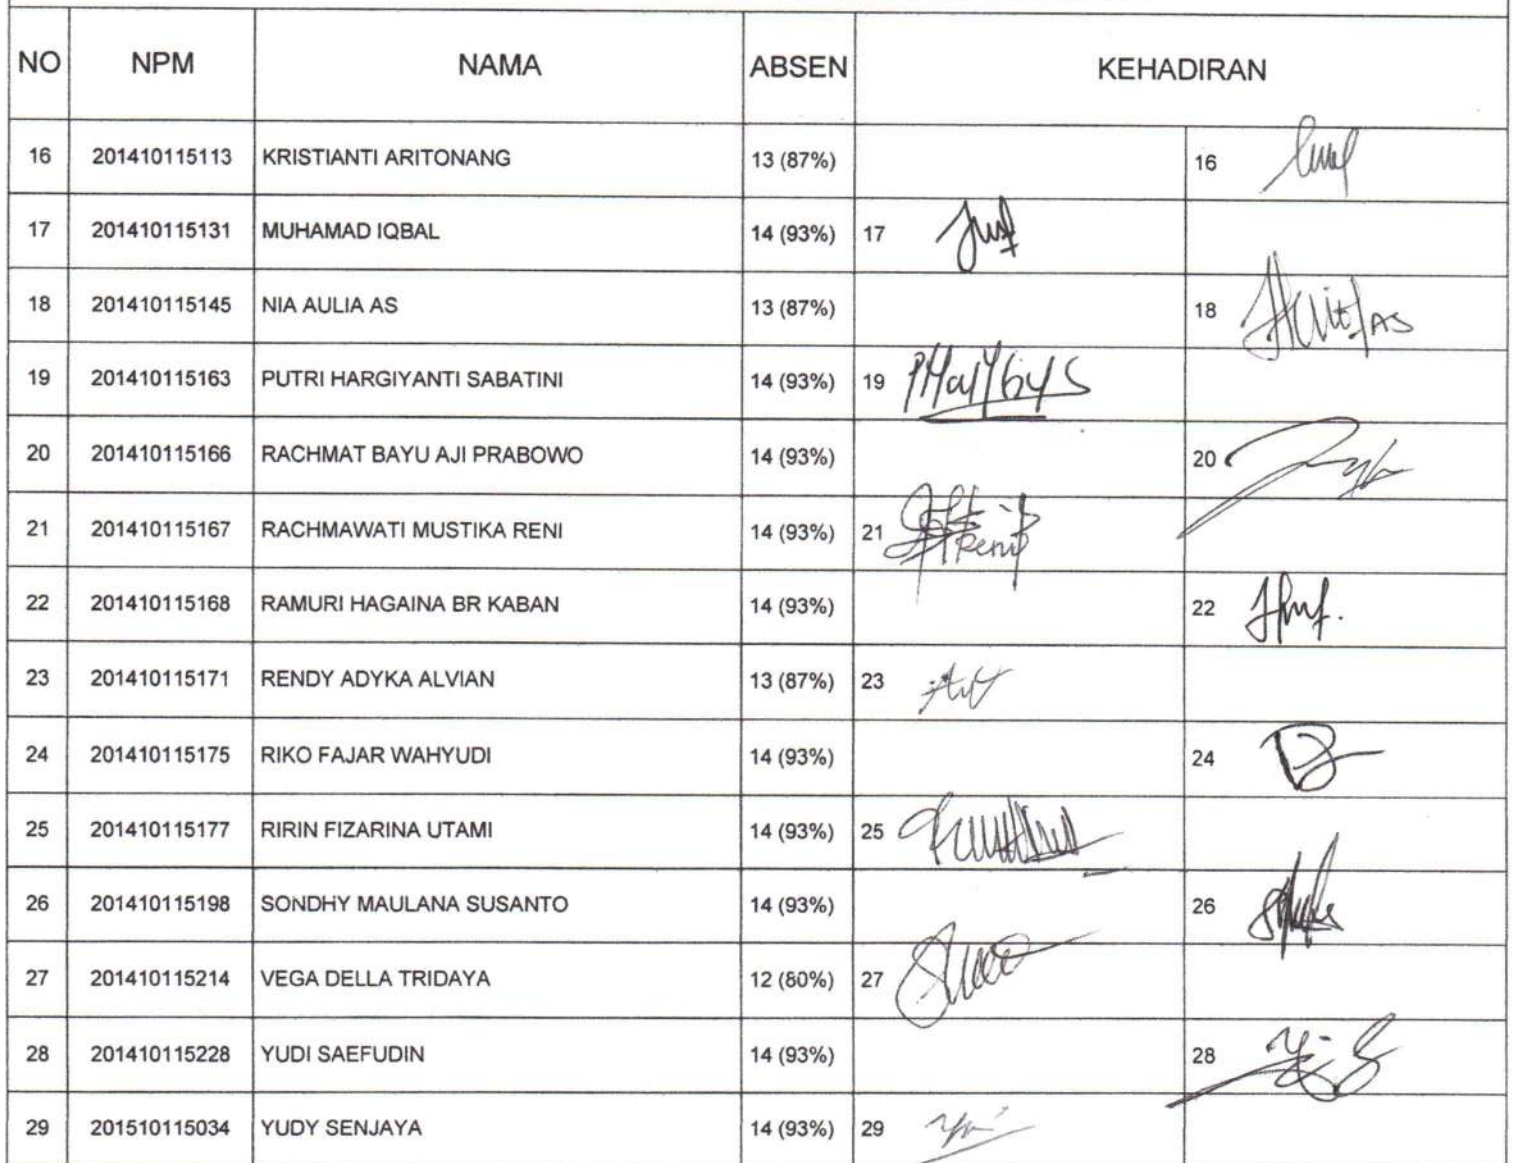 NO NPM NAMA ABSEN KEHADIRAN
16 201410115113 KRISTIANTI ARITONANG 13 (87%) 16
17 201410115131 MUHAMAD IQBAL 14 (93%) 17
18 201410115145 NIA AULIA AS 13 (87%) 18
19 201410115163 PUTRI HARGIYANTI SABATINI 14 (93%) 19
20 201410115166 RACHMAT BAYU AJI PRABOWO 14 (93%) 20
21 201410115167 RACHMAWATI MUSTIKA RENI 14 (93%) 21
22 201410115168 RAMURI HAGAINA BR KABAN 14 (93%) 22
23 201410115171 RENDY ADYKA ALVIAN 13 (87%) 23
24 201410115175 RIKO FAJAR WAHYUDI 14 (93%) 24
25 201410115177 RIRIN FIZARINA UTAMI 14 (93%) 25
26 201410115198 SONDHY MAULANA SUSANTO 14 (93%) 26
27 201410115214 VEGA DELLA TRIDAYA 12 (80%) 27
28 201410115228 YUDI SAEFUDIN 14 (93%) 28
29 201510115034 YUDY SENJAYA 14 (93%) 29